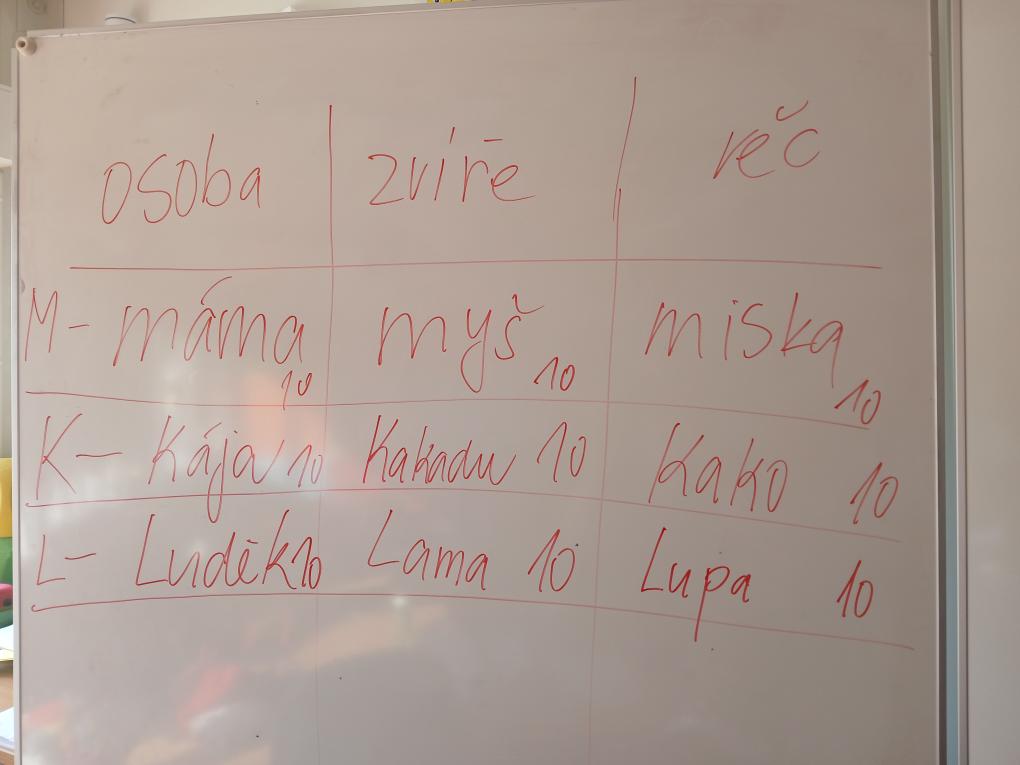 osoba zvíře věc
M- máma 10 myš 10 miska 10
K- Kája 10 Kakadu 10 Kako 10
L- Luděk 10 Lama 10 Lupa 10